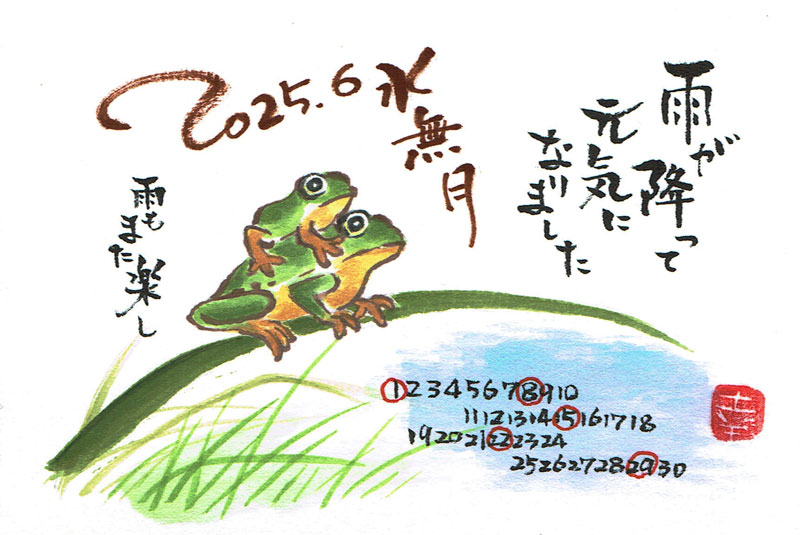 雨が降って
元気に
なりました
2025.6水
無月
雨も
また楽し
1 2 3 4 5 6 7 8 9 10
11 12 13 14 15 16 17 18
19 20 21 22 23 24
25 26 27 28 29 30
幸